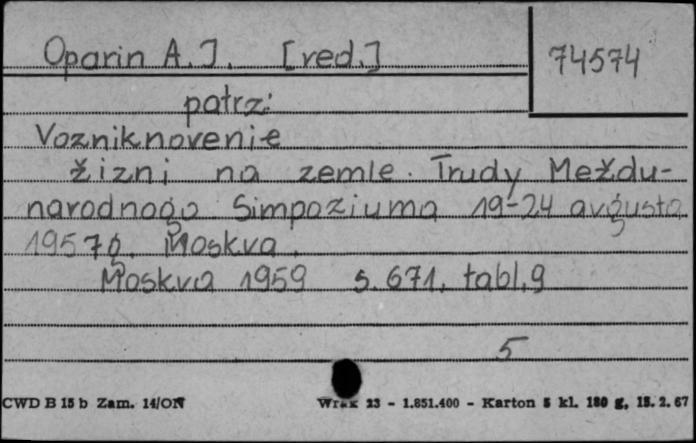 Oparin A.I. [red.]
74574
patrz:
Vozniknovenie
žizni na zemle. Trudy Meždu-
narodnogo Simpoziuma 19-24 avgusta
1957 g. Moskva.
Moskva 1959 s. 671, tabl. 9
5
CWD B 15 b Zam. 14/ON 23 - 1.851.400 - Karton 5 kl. 180 g, 15. 2. 67